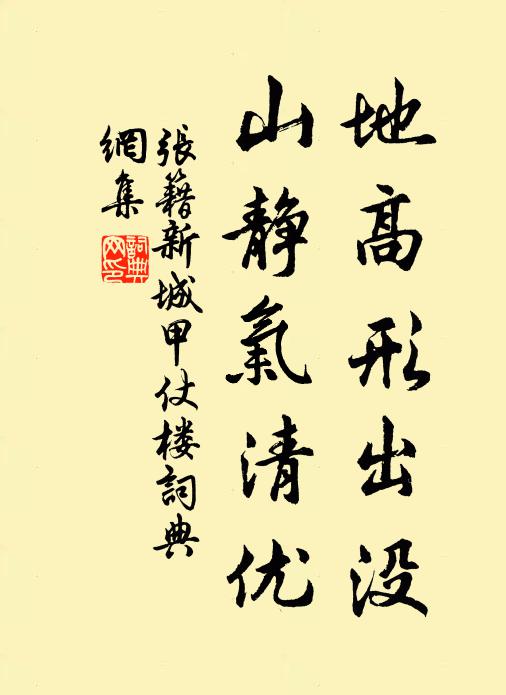 地高形出没
山静氣清优
張籍新城甲仗楼詞典
網集
詞典网印